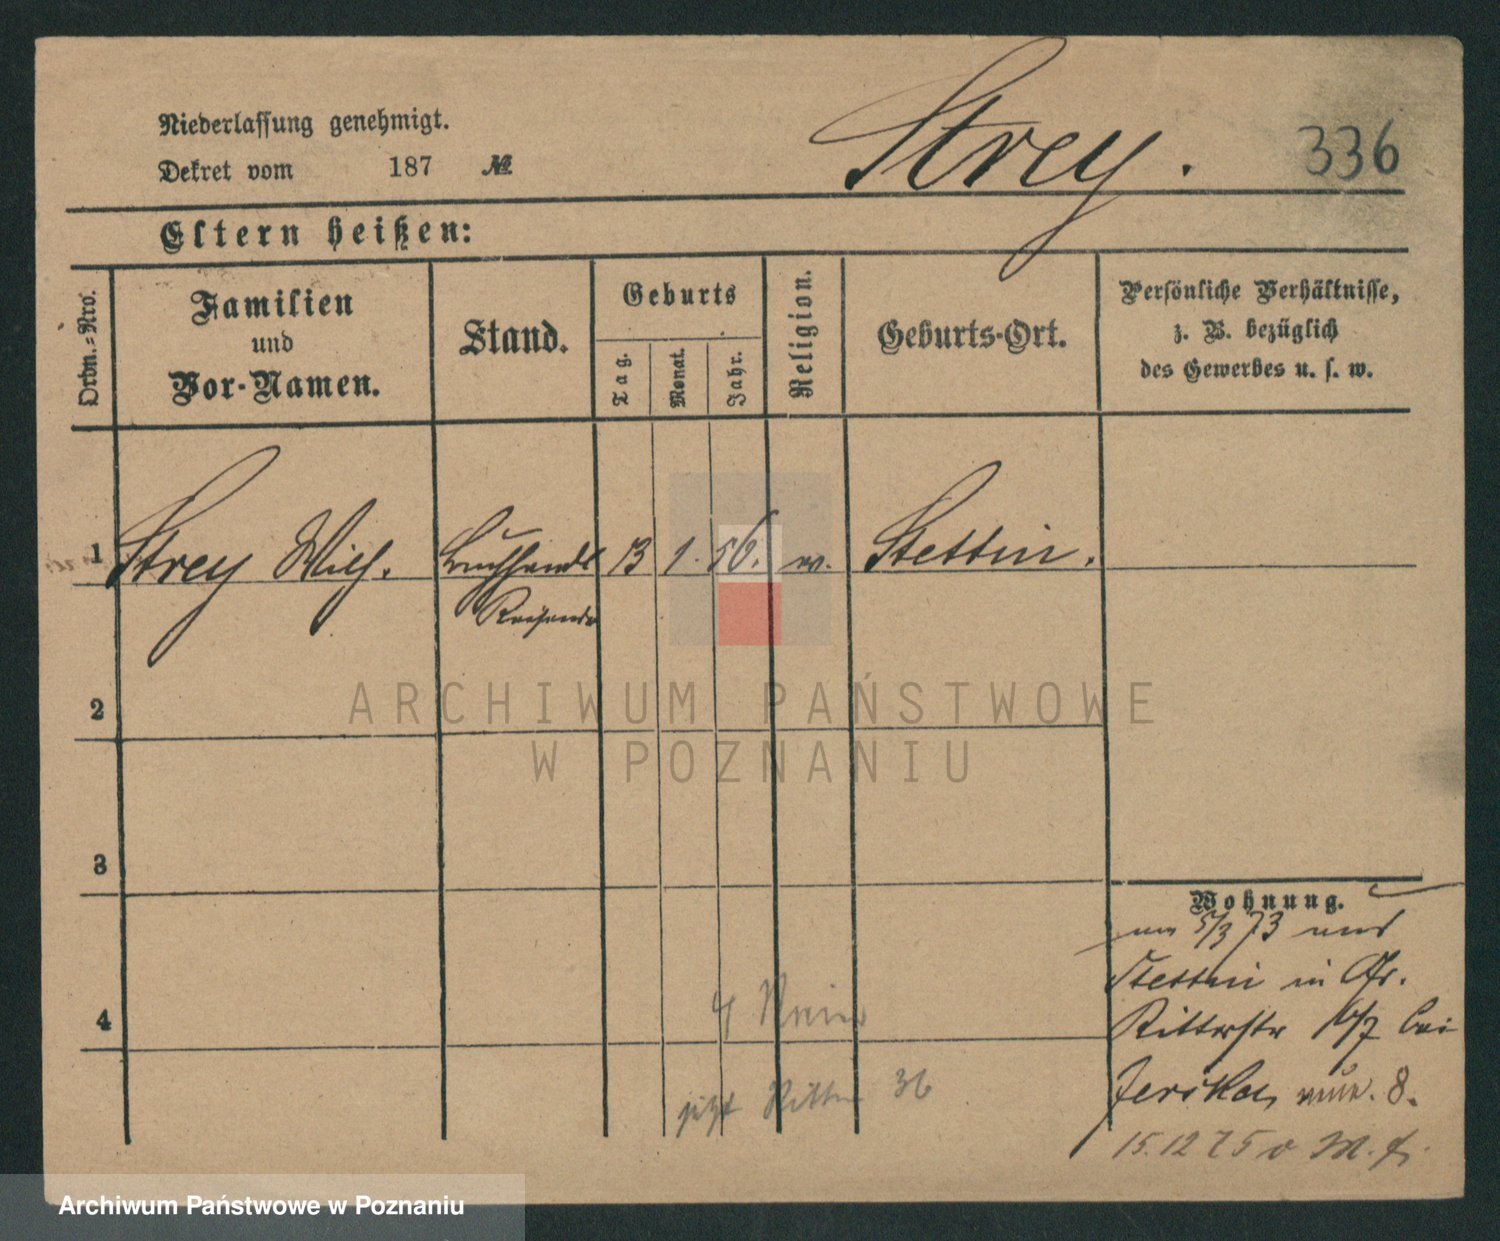 Niederlassung genehmigt.
Dekret vom 187 №
Strey.
336
Eltern heißen:
Ordn.-Nro.
Familien
und
Vor-Namen.
Stand.
Geburts
Tag.
Monat.
Jahr.
Religion.
Geburts-Ort.
Persönliche Verhältnisse,
z. B. bezüglich
des Gewerbes u. s. w.
1 Strey Wilh. Buchhandl 13 1. 56. ev. Stettin.
Reisender
2
3
4
Wohnung.
5/3 73
Stettin in Gr.
Ritterstr 16/7 bei
8.
jetzt Ritter 36
15.12 75 v
ARCHIWUM PAŃSTWOWE
W POZNANIU
Archiwum Państwowe w Poznaniu